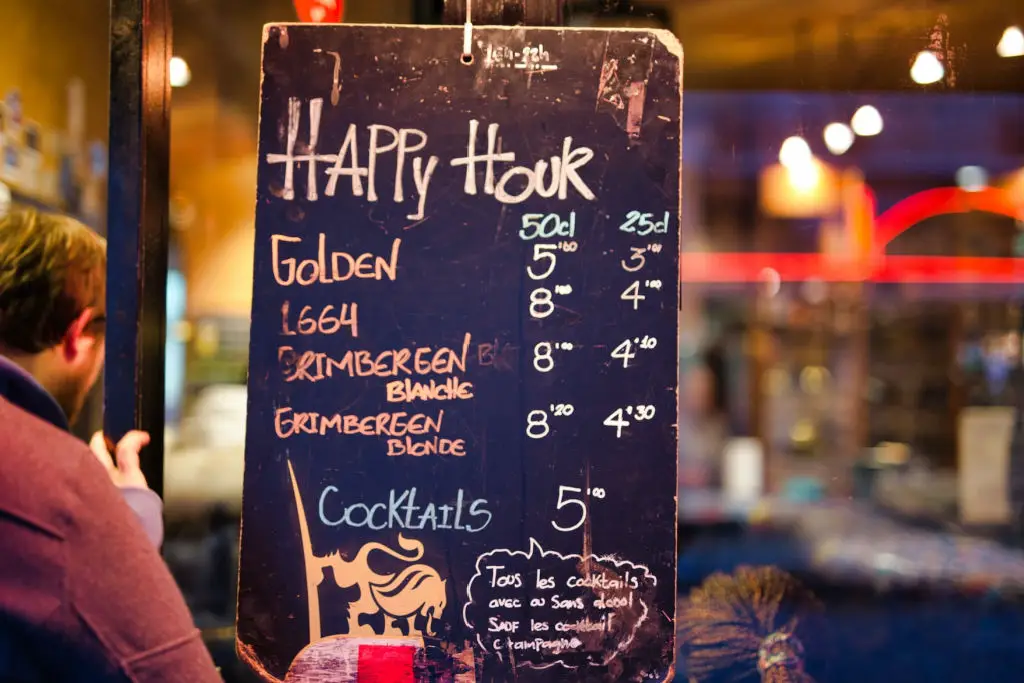 16h-22h
HAPPy HOUR
50cl 25cl
GOLDEN 5'00 3'00
1664 8'00 4'00
GRIMBERGEN 8'00 4'10
BLANCHE
GRIMBERGEN 8'20 4'30
BLONDE
COCKTAILS 5'00
Tous les cocktails
avec ou Sans alcool
SAUF les cocktail
CHampagne